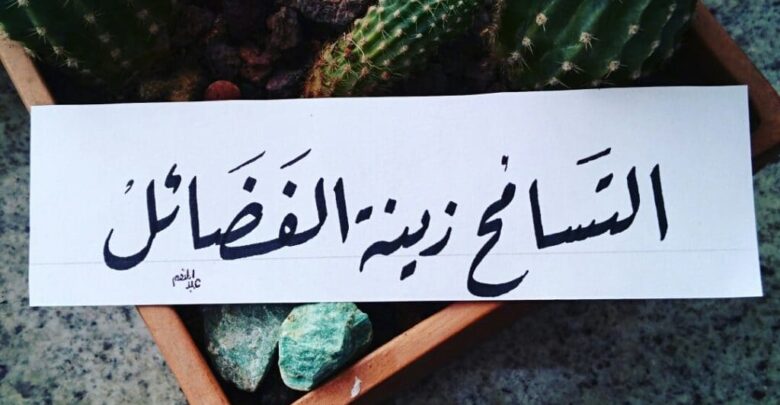 التَسامُح زينة الفَضَائلُ
عبد المنعم